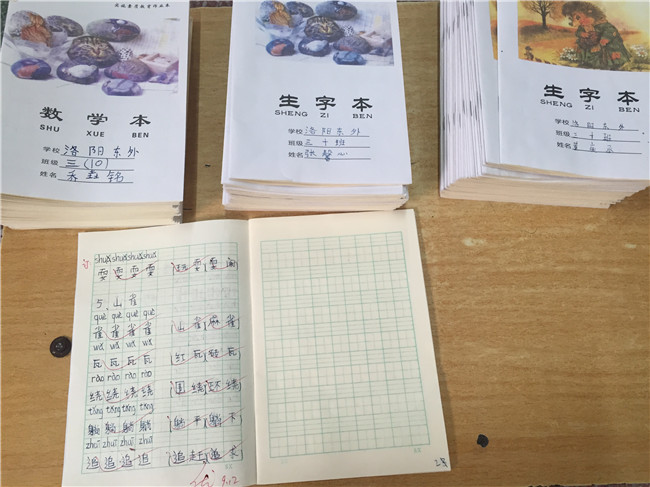 数学本
SHU XUE BEN
学校 洛阳东外
班级 三(10)
姓名
生字本
SHENG ZI BEN
学校 洛阳东外
班级 三十班
姓名 张馨心
生字本
SHENG ZI BEN
学校 洛阳东外
班级 三十班
姓名
shuǎ shuǎ shuǎ shuǎ
耍 耍 耍 耍 (玩耍)(耍闹)
5、山雀
què què què què
雀 雀 雀 雀 (山雀)(麻雀)
wǎ wǎ wǎ wǎ
瓦 瓦 瓦 瓦 (红瓦)(砖瓦)
rào rào rào rào
绕 绕 绕 绕 (围绕)(环绕)
tǎng tǎng tǎng tǎng
躺 躺 躺 躺 (躺平)(躺下)
zhuī zhuī zhuī zhuī
追 追 追 追 (追赶)(追求)
优 9.12